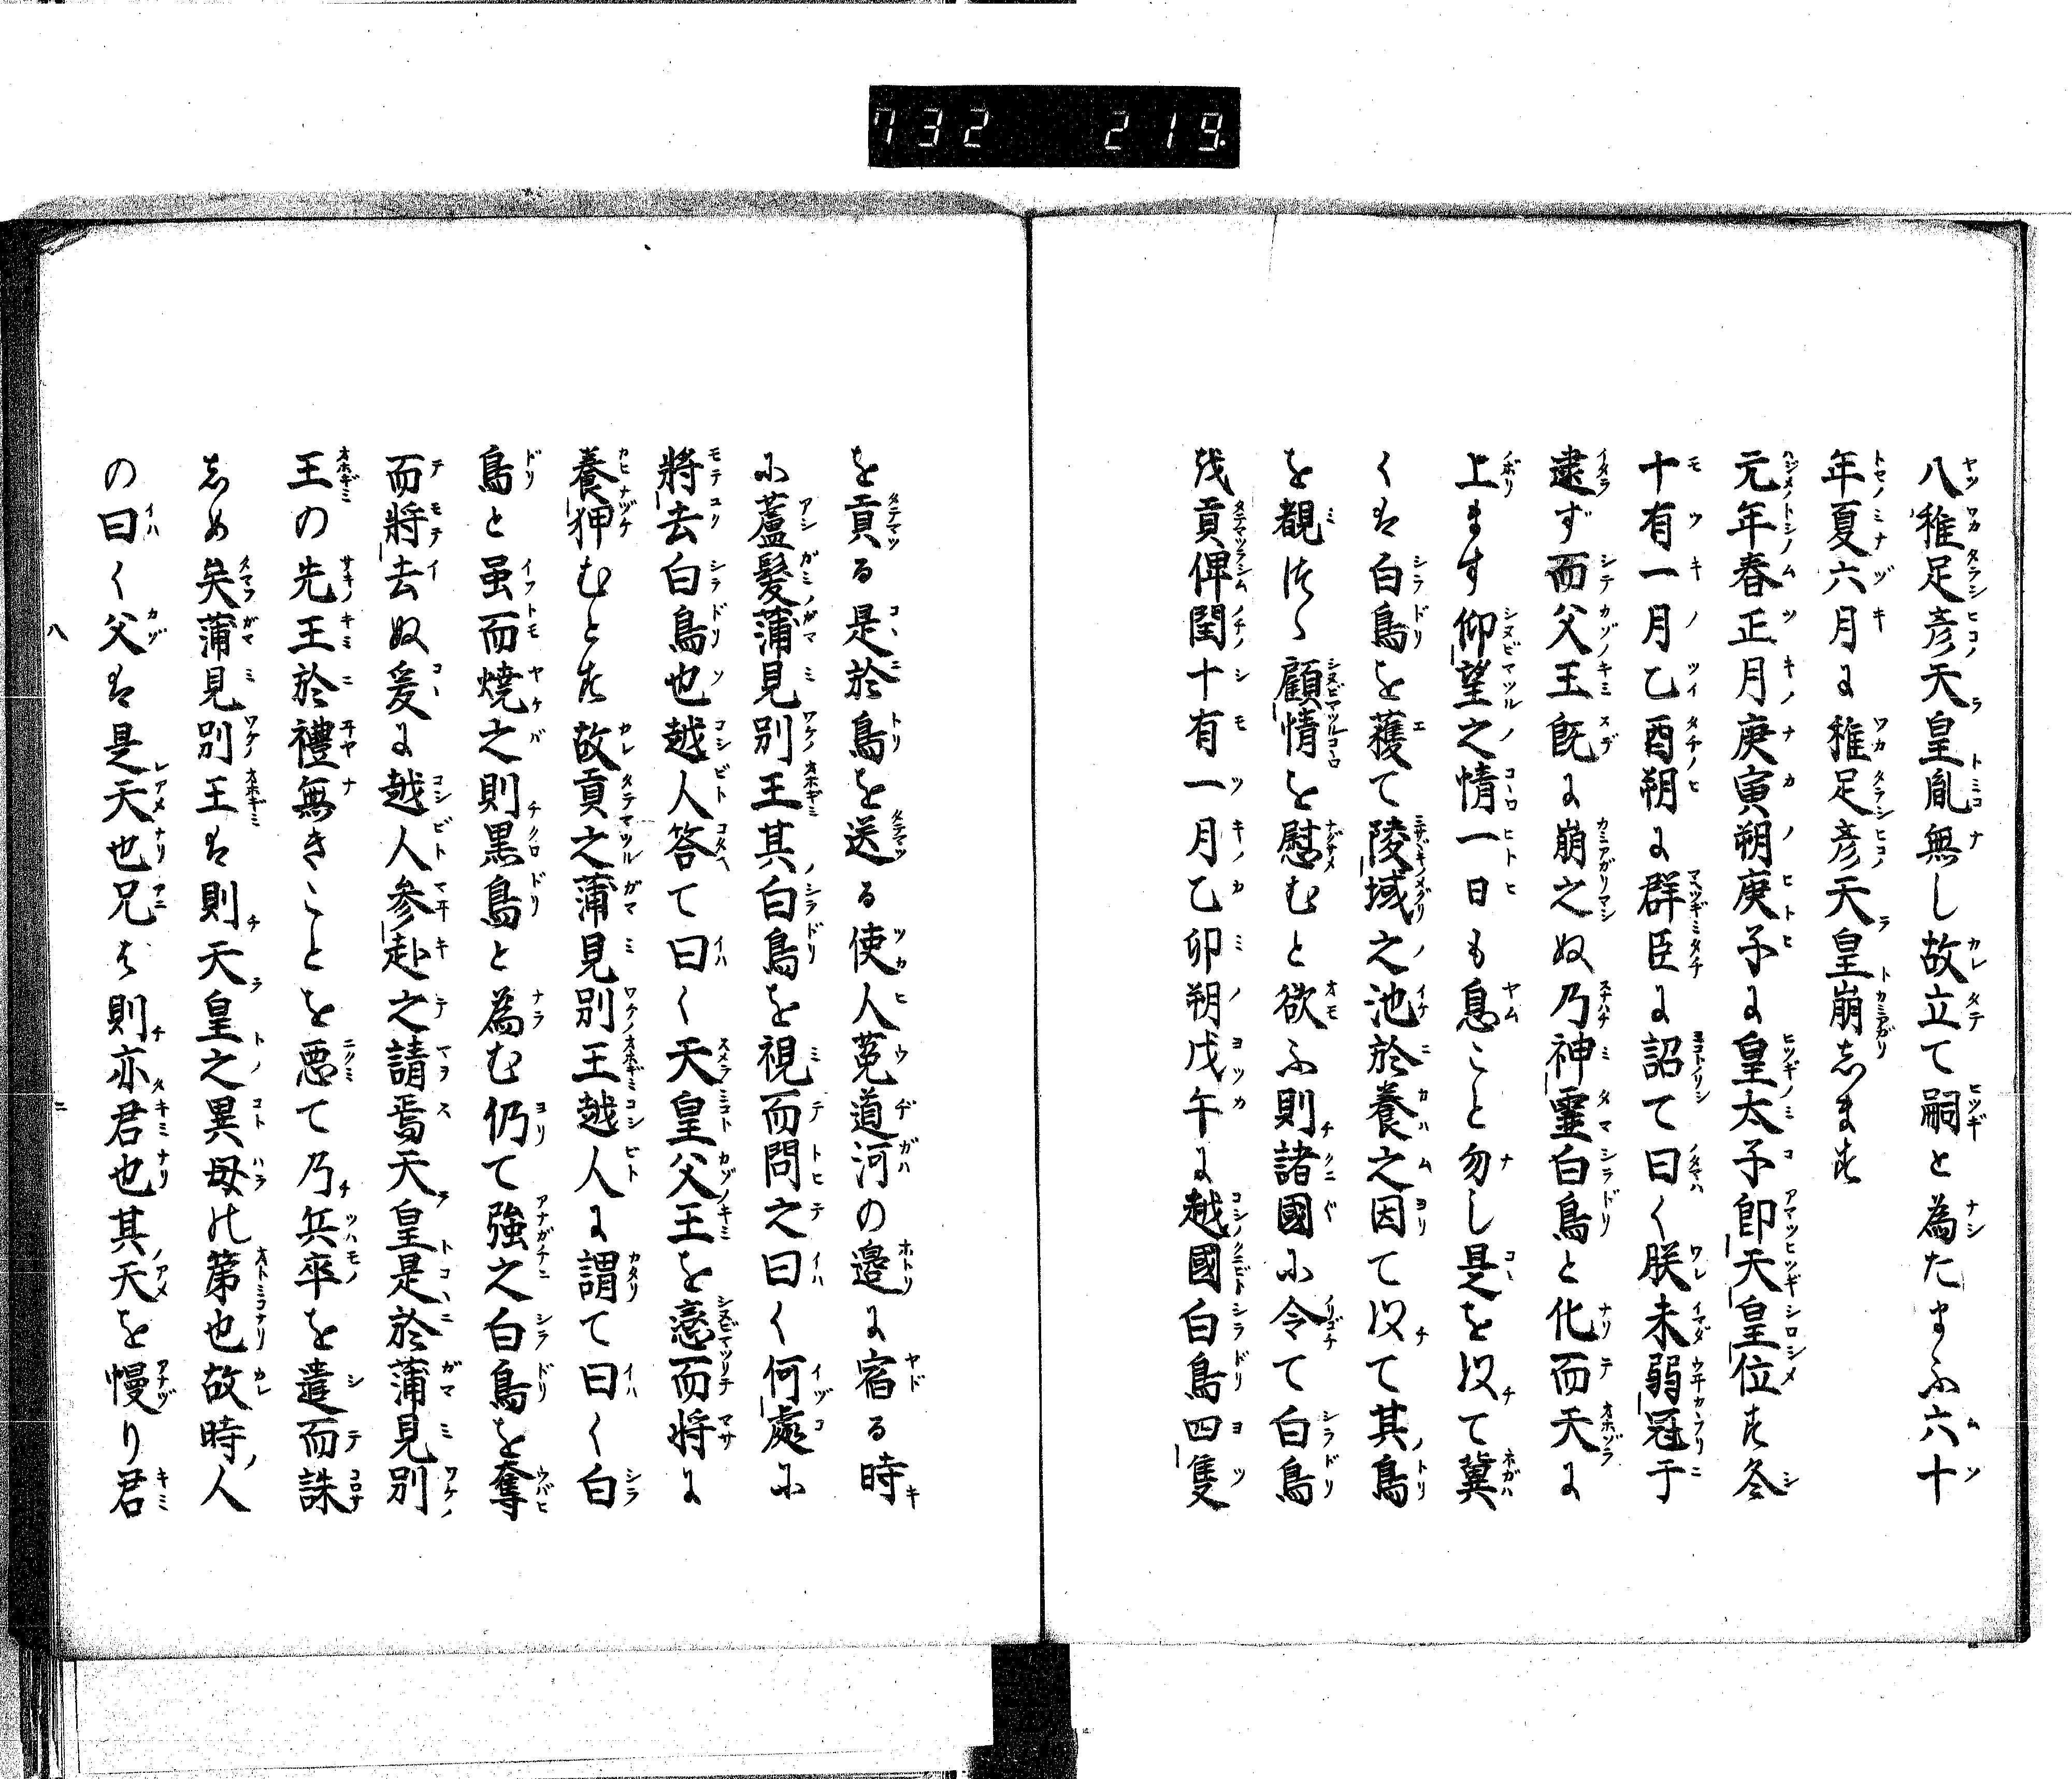 732 219.
八稚足彦天皇胤無し故立て嗣と為たまふ六十
年夏六月に稚足彦天皇崩志ます
元年春正月庚寅朔庚子に皇太子即天皇位す冬
十有一月乙酉朔に群臣に詔て曰く朕未弱冠于
逮ず而父王既に崩之ぬ乃神霊白鳥と化而天に
上ます仰望之情一日も息こと勿し是を以て冀
くは白鳥を獲て陵域之池於養之因て以て其鳥
を覩つゝ顧情を慰むと欲ふ則諸國に令て白鳥
を貢俾閏十有一月乙卯朔戊午に越國白鳥四隻
を貢る是於鳥を送る使人菟道河の邉に宿る時
に蘆髪蒲見別王其白鳥を視而問之曰く何處に
將去白鳥也越人答て曰く天皇父王を戀而将に
養狎むとす故貢之蒲見別王越人に謂て曰く白
鳥と虽而焼之則黒鳥と為む仍て強之白鳥を奪
而將去ぬ爰に越人参赴之請焉天皇是於蒲見別
王の先王於禮無きことを悪て乃兵卒を遣而誅
志め矣蒲見別王は則天皇之異母の第也故時人
の曰く父は是天也兄は則亦君也其天を慢り君
八 二